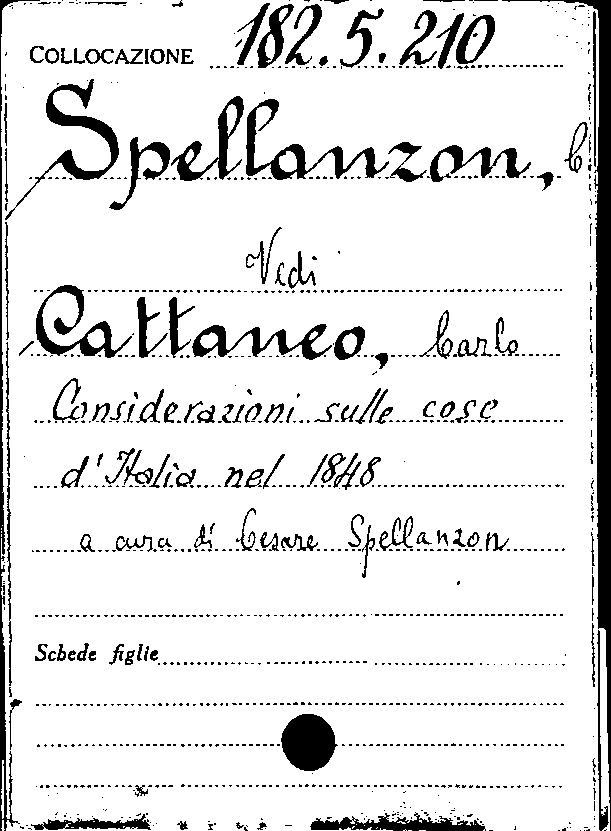 COLLOCAZIONE 182.5.210
Spellanzon, C
Vedi
Cattaneo, Carlo
Considerazioni sulle cose
d'Italia nel 1848
a cura di Cesare Spellanzon
Schede figlie